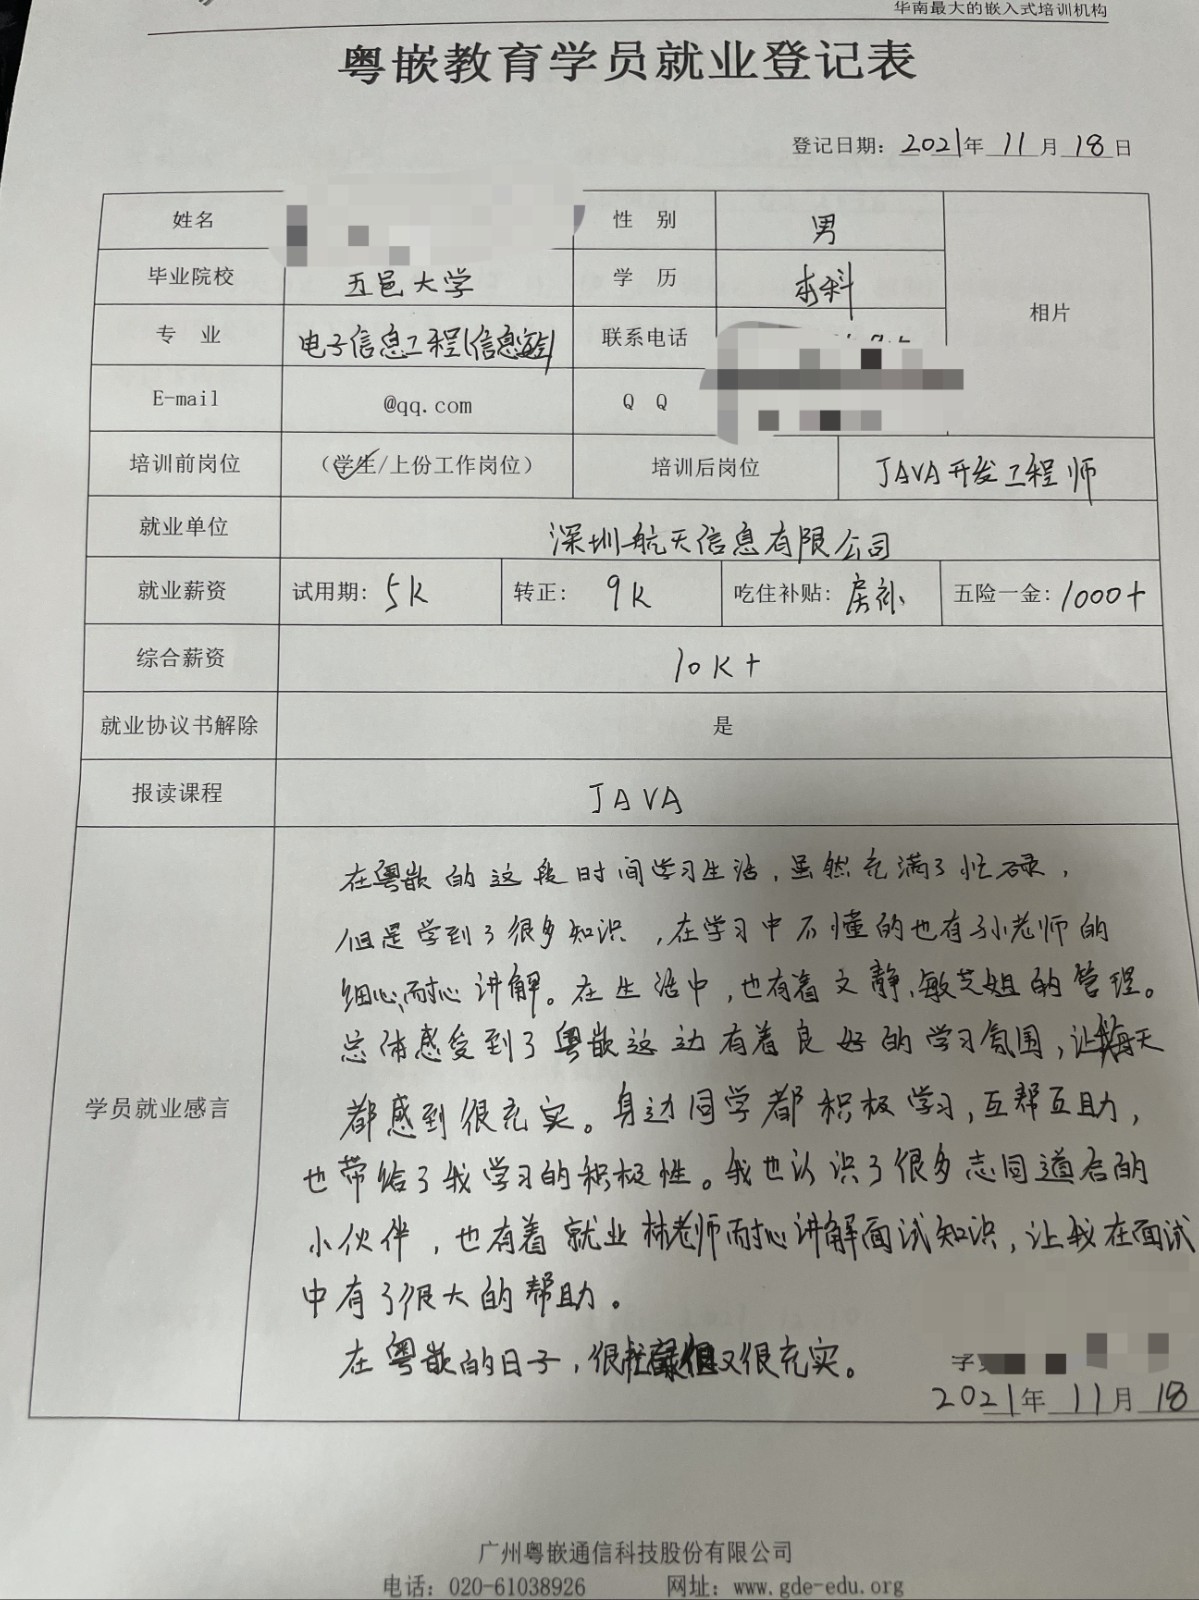 华南最大的嵌入式培训机构
粤嵌教育学员就业登记表
登记日期: 2021年 11 月 18 日
姓名 性 别 男
毕业院校 五邑大学 学 历 本科 相片
专 业 电子信息工程(信息 联系电话
E-mail @qq.com Q Q
培训前岗位 (学生/上份工作岗位) 培训后岗位 JAVA开发工程师
就业单位 深圳航天信息有限公司
就业薪资 试用期: 5K 转正: 9K 吃住补贴: 房补 五险一金: 1000+
综合薪资 10K+
就业协议书解除 是
报读课程 JAVA
学员就业感言
在粤嵌的这段时间学习生活,虽然充满了忙碌,
但是学到了很多知识,在学习中不懂的也有孙老师的
细心、耐心讲解。在生活中,也有着文静、敏芝姐的管理。
总体感受到了粤嵌这边有着良好的学习氛围,让我每天
都感到很充实。身边同学都积极学习,互帮互助,
也带给了我学习的积极性。我也认识了很多志同道合的
小伙伴,也有着就业林老师耐心讲解面试知识,让我在面试
中有了很大的帮助。
在粤嵌的日子,很忙碌但又很充实。
学
2021年 11 月 18
广州粤嵌通信科技股份有限公司
电话: 020-61038926 网址: www.gde-edu.org